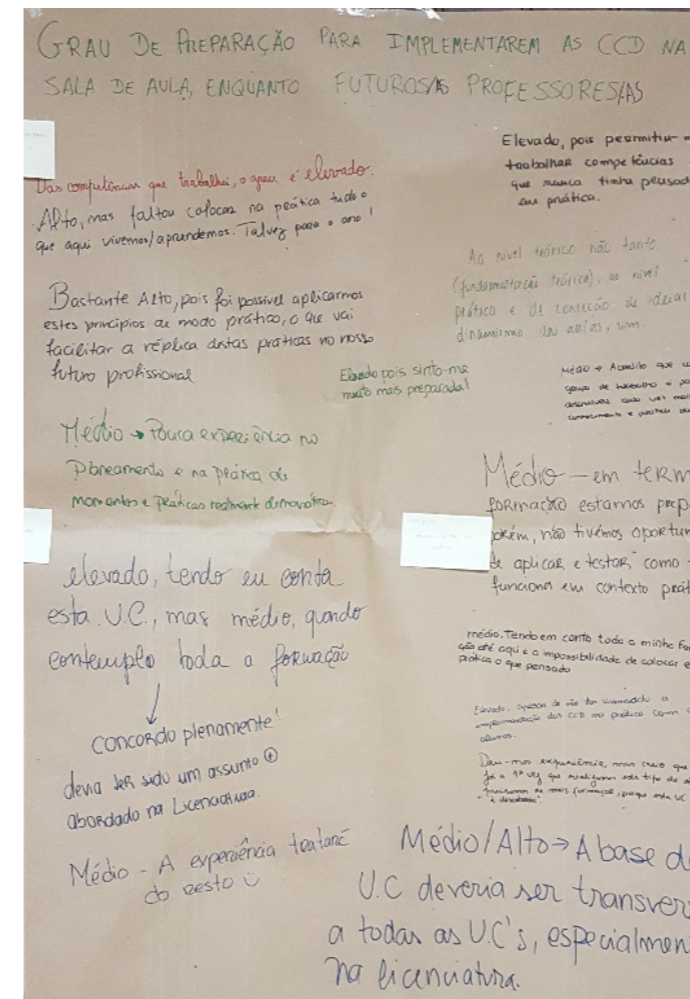 GRAU DE PREPARAÇÃO PARA IMPLEMENTAREM AS CCD NA
SALA DE AULA, ENQUANTO FUTUROS/AS PROFESSORES/AS
Das competências que trabalhei, o grau é elevado.
Alto, mas faltou colocar na prática tudo o
que aqui vivemos/aprendemos. Talvez para o ano!
Bastante Alto, pois foi possível aplicarmos
estes princípios de modo prático, o que vai
facilitar a réplica destas práticas no nosso
futuro profissional
Elevado pois sinto-me
muito mais preparada!
Médio → Pouca experiência no
planeamento e na prática de
momentos e práticas realmente
elevado, tendo eu conta
esta U.C., mas médio, quando
contemplo toda a formação
↓
CONCORDO plenamente!
devia ter sido um assunto +
abordado na Licenciatura.
Médio - A experiência tratará
do resto
Elevado, pois permitiu-
trabalhar competências
que nunca tinha pensad
em prática.
Ao nível teórico não tanto
(fundamentação teórica), ao nível
prático e de conceção de ideias
dinamismo das aulas, sim.
Médio → Acredito que
grupo de trabalho
conhecimento e
Médio - em term
formação estamos prep
porém, não tivémos oportun
de aplicar e testar, como
funciona em contexto prát
médio. Tendo em conta toda a minha for
ção até aqui e a impossibilidade de colocar e
prática o que pensado
Elevado, apesar de não ter vivenciado a
implementação das CCD na prática com
alunos.
Deu-nos experiência, mas creio que
foi a 1ª vez que realizamos este tipo de
precisamos de mais formação, porque esta UC
Médio/Alto → A base d
U.C deveria ser transver
a todas as U.C's, especialmen
na licenciatura.